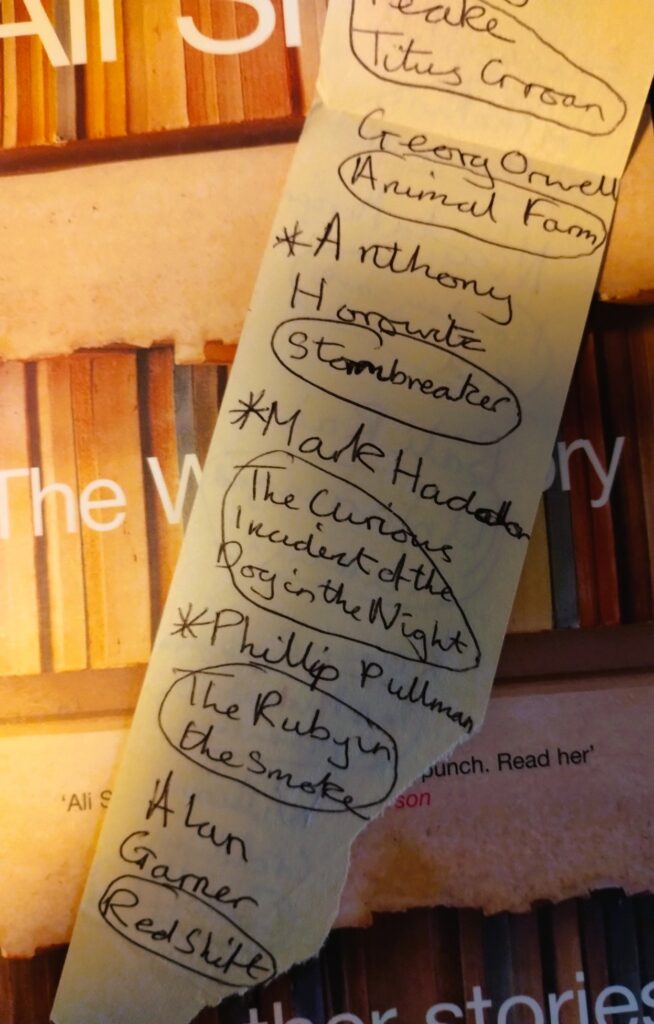 Ali S
Peake
Titus Groan
Georg Orwell
Animal Farm
*Anthony
Horowitz
Stormbreaker
*Mark Haddon
The Curious
Incident of the
Dog in the Night
*Phillip Pullman
The Ruby in
the Smoke
Alan
Garner
Red Shift
The W ory
punch. Read her'
'Ali S son
ther stories